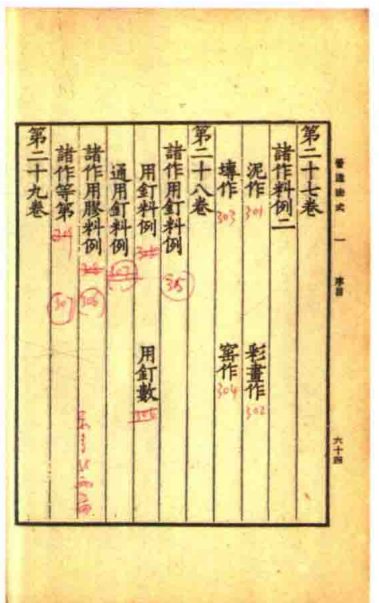 營造法式 一 序目 六十四
第二十七卷
諸作料例二
泥作 301 彩畫作 302
塼作 303 窰作 304
第二十八卷
諸作用釘料例 305
用釘料例 用釘數
通用釘料例 307
諸作用膠料例 306
諸作等第 307
第二十九卷